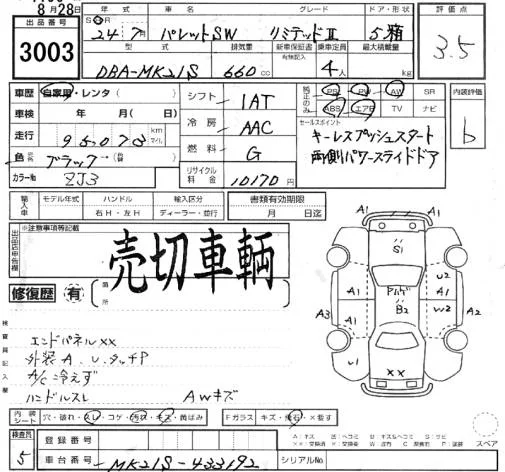 8月28日
出品番号 3003
年式 車名 グレード ドア・形状 評価点
24年 7月 パレットSW リミテッドⅡ 5 箱 3.5
型式 排気量 新車保証書 有無記入 乗車定員 最大積載量
DBA-MK21S 660cc 4人 kg
車歴 自家用・レンタ( )
車検 年 月( )
走行 95078 km マイル
色 ブラック
カラーNo ZJ3
シフト 1AT
冷房 AAC
燃料 G
リサイクル料金 10170円
純正のみ PS PW AW SR
ABS エアB TV ナビ
内装評価 b
セールスポイント
キーレスプッシュスタート
両側パワースライドドア
輸入車 モデル年式 ハンドル 輸入区分 書類有効期限
年 右H・左H ディーラー・並行 月 日迄
※注意事項等記載
売切車輌
修復歴 有 箇所
検査員記入欄
エンドパネルXX
外装A.U.タッチP
A/C冷えず
ハンドルスレ AWキズ
A1 S1 A1
A1 Pハゲ U2
A3 A1 B2 W2 A2
U1 XX A1
内装シート 穴・破れ・スレ・コゲ・汚れ・キズ・黄ばみ Fガラス キズ・飛石・X要す
検査員 5
登録番号
車台番号 MK21S-433192 シリアルNo
スペア